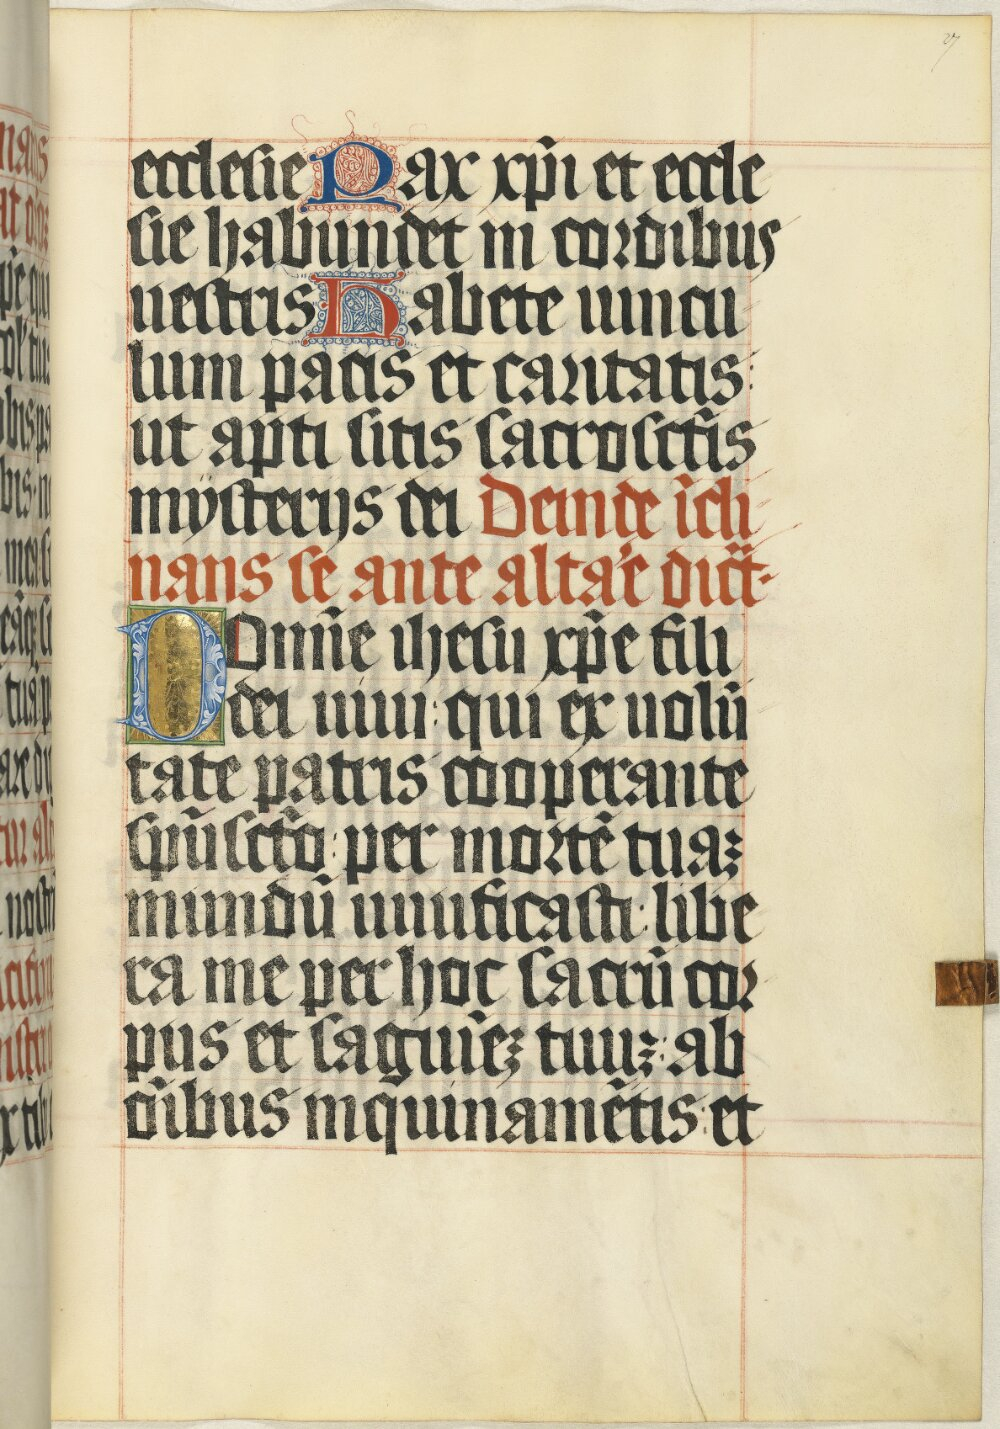 27
ecclesie Pax xp̄i et eccle
sie habundet in cordibus
vestris Habete vincu
lum pacis et caritatis:
ut apti sitis sacrosctīs
mysterijs dei Deinde īcli
nans se ante altar̄e dicīt.
Domīe ihesu xp̄e fili
dei vivi: qui ex volū
tate patris cooperante
spū sctō: per mortē tuaꝫ
mundū vivificasti: libe
ra me per hoc sacrū cor
pus et sāguīeꝫ tuuꝫ: ab
oībus inquinamētis: et